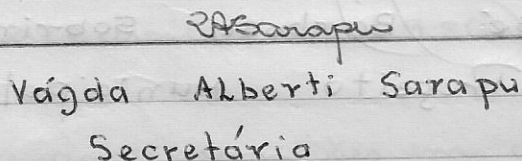 VASarapu
Vágda Alberti Sarapu
Secretária